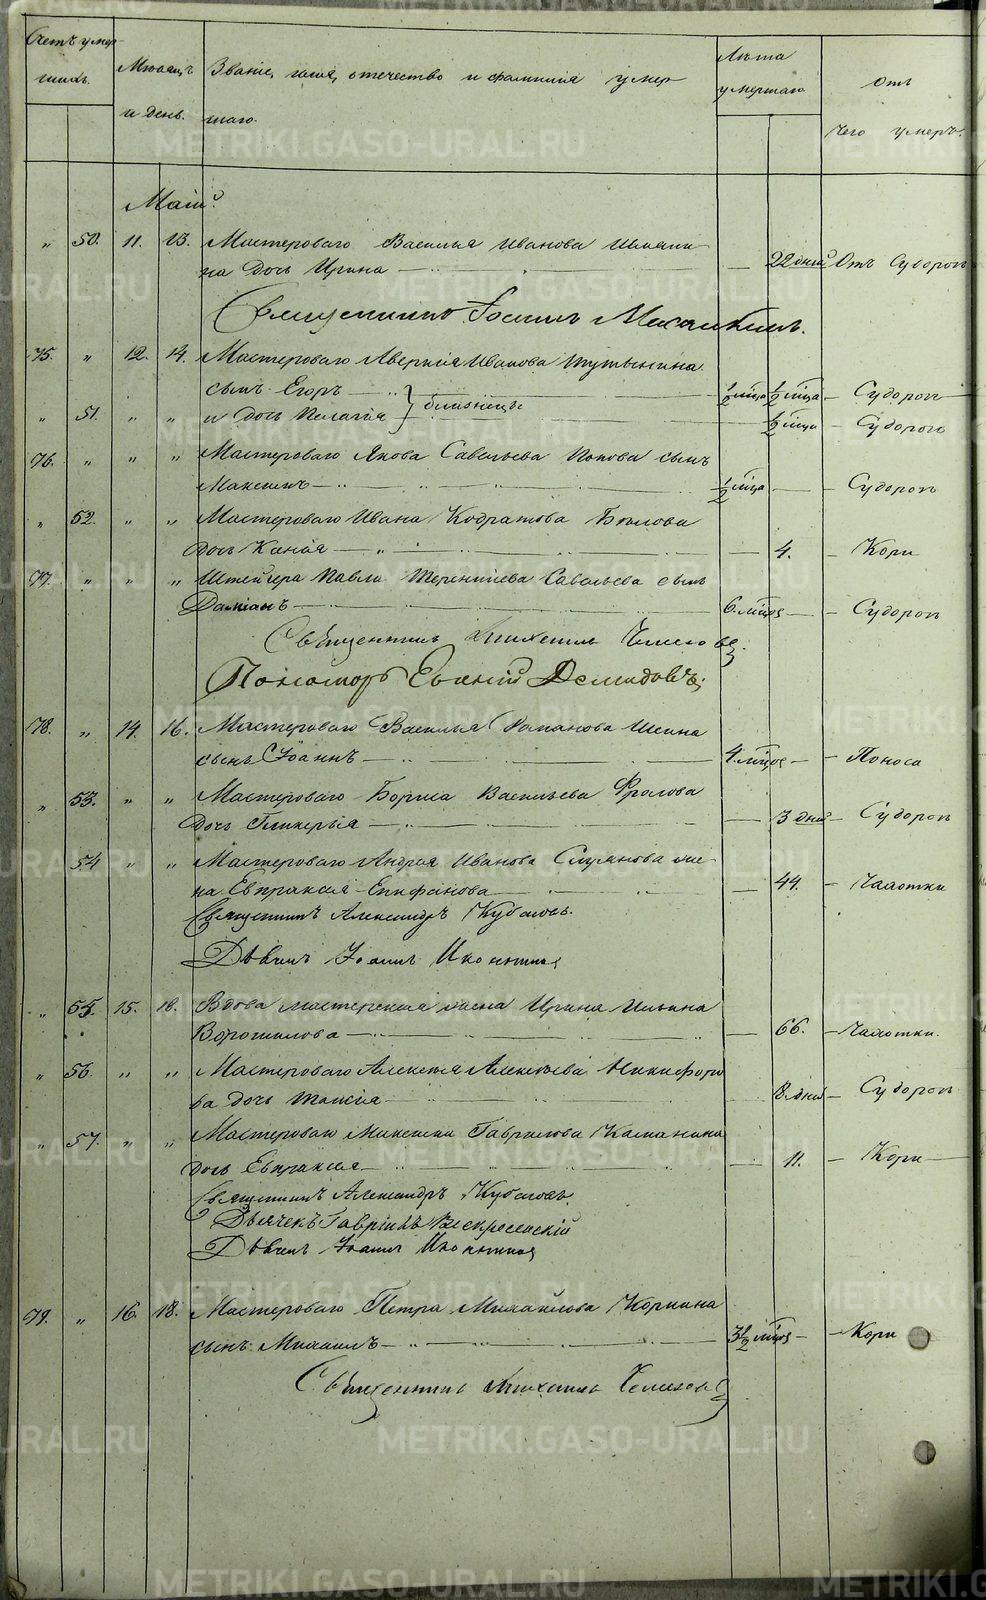 Счетъ умер-
шихъ.
Мѣсяцъ
и день.
Званіе, имя, отечество и фамилія умер-
шаго.
Лѣта
умершаго.
Отъ
чего умеръ.
Маій.
„ 50. 11. 13. Мастероваго Василья Иванова
на дочь Ирина — 22 дней Отъ Судорогъ
Священникъ Іоаннъ
75. „ 12. 14. Мастероваго Аверкія Иванова
сынъ Егоръ — ½ мѣца — Судорогъ
„ 51. „ „ и дочь Пелагія } близнецы ½ мѣца — Судорогъ
76. „ „ „ Мастероваго Якова Савельева Попова сынъ
Максимъ — ½ мѣца — Судорогъ
„ 52. „ „ Мастероваго Ивана Кодратова Бѣлова
дочь — 4. — Кори
77. „ „ „ Штейгера Павла Терентіева Савельева сынъ
Даміанъ — 6. мѣцов — Судорогъ
Священникъ
Пономарь Евгений Демидовъ.
78. „ 14. 16. Мастероваго Василья Романова
сынъ Іоаннъ — 4. мѣцов — Поноса
„ 53. „ „ Мастероваго Бориса Васильева Фролова
дочь Гликерія — 3 дней — Судорогъ
54 „ „ Мастероваго Андрея Иванова же-
на Евпраксія Епифанова — 44. — Чахотки
Священникъ Александръ
Дьячекъ Іоаннъ
„ 55. 15. 18. Вдова мастерская жена Ирина Ильина
Ворошилова — 66. — Чахотки.
„ 56. „ „ Мастероваго Алексѣя Алексѣева Никифоро
ва дочь Таисія — 8. дней — Судорогъ
„ 57. „ „ Мастероваго Максима Гаврилова
дочь Евпраксія — 11. — Кори
Священникъ Александръ
Дьячекъ Гавріилъ Воскресенскій
Дьячекъ Іоаннъ
79. „ 16. 18. Мастероваго Петра Михайлова Коркина
сынъ Михаилъ — 3½ мѣцов — Кори
Священникъ
METRIKI.GASO-URAL.RU